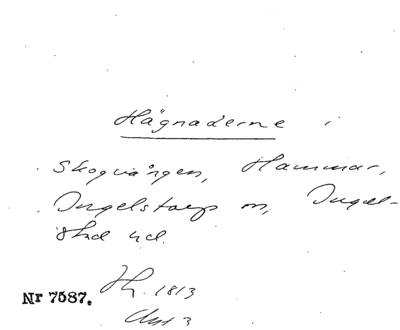 Hägnaderne i
Skogsången, Hammar,
Ingelstorps sn, Ingel-
stad hd.
Nr 7587.
1813
3